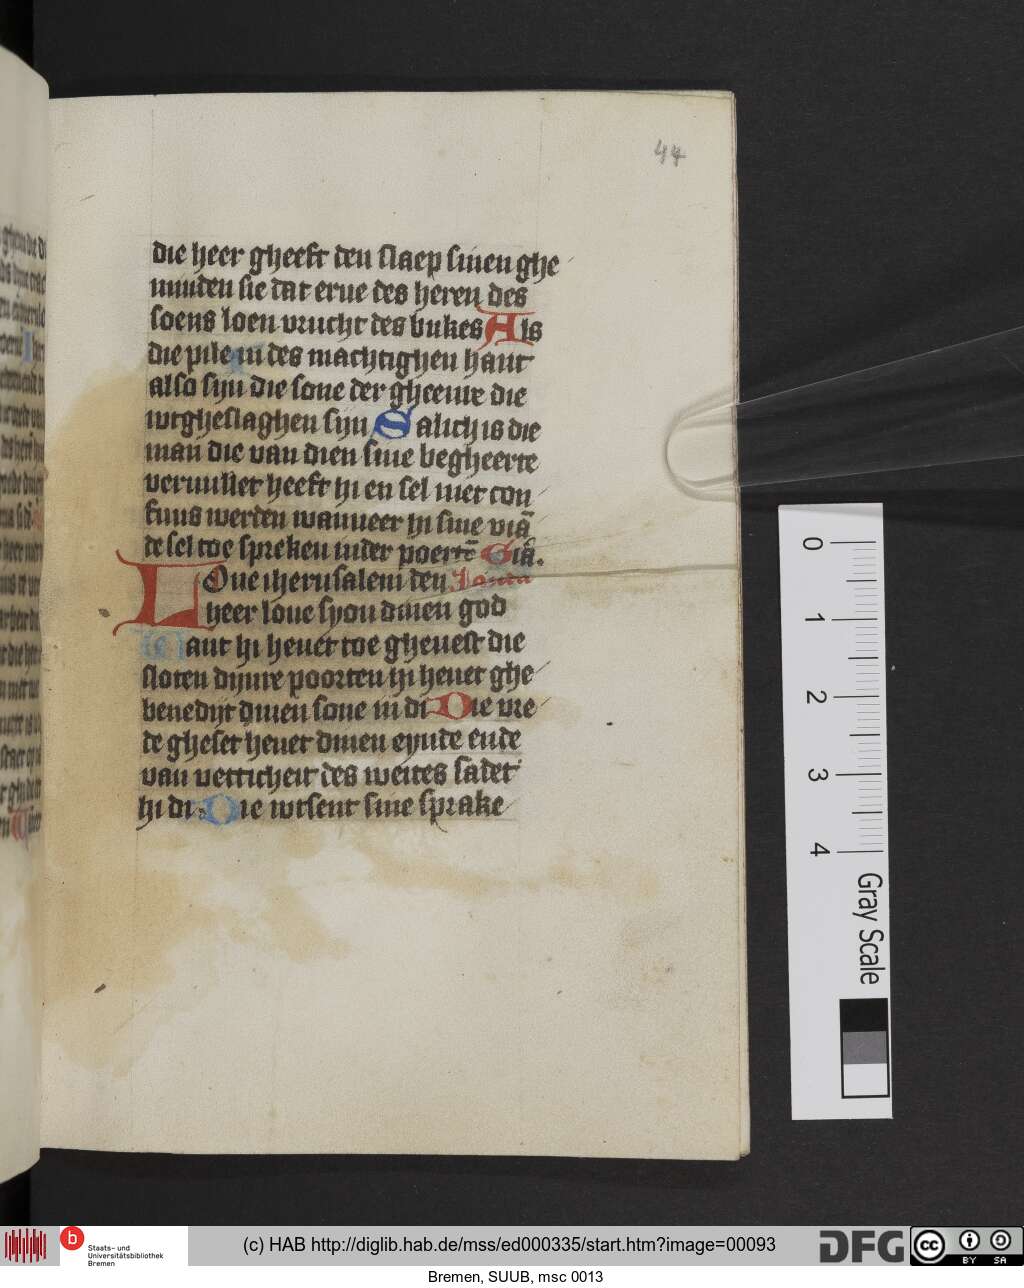 44
die heer gheeft den slaep sinen ghe
minden sie dat erue des heren des
soens loen vrucht des bukes Als
die pile in des machtighen hant
also sijn die sone der gheenre die
wtgheslaghen sijn Salich is die
man die van dien sine begheerte
veruullet heeft hi en sel niet con
fuus werden wanneer hi sine viā
de sel toe spreken in der poertē Giā.
LOue iherusalem den
heer loue syon dinen god
Want hi heuet toe gheuest die
sloten dijnre poorten hi heuet ghe
benedijt dinen sone in di Die vre
de gheset heuet dinen eynde ende
van vetticheit des weites sadet
hi di Die wtsent sine sprake
0
1
2
3
4
Gray Scale
b
Staats- und
Universitätsbibliothek
Bremen
(c) HAB http://diglib.hab.de/mss/ed000335/start.htm?image=00093
DFG
cc
BY SA
Bremen, SUUB, msc 0013